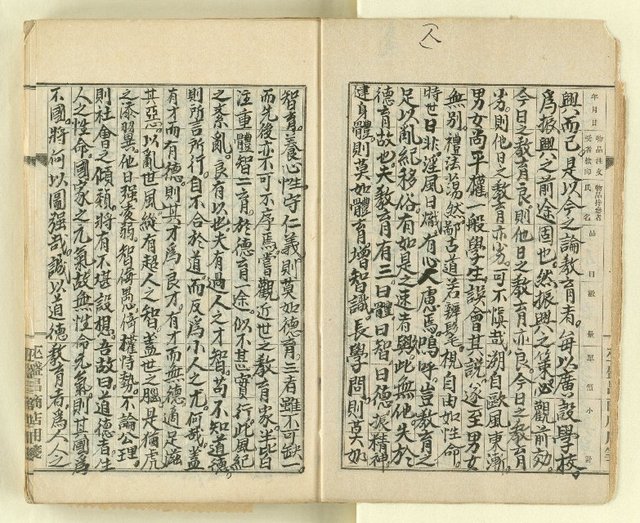 興而已是以今之論教育者每以廣設學校
爲振興之前途固也然振興之策必觀前効
今日之教育良則他日之教育亦良今日之教育
劣則他日之教育亦劣可不慎哉溯自歐風東漸
男女尚平權一般學生誤會其說遂至男女
無別禮法蕩然鄙古道若辨髦視自由如性命
時世日非淫風日熾有心人慮焉嗚呼豈教育
足以亂紀移俗有如是之速者興此無他失於
德育故也夫教育有三曰體曰智曰德振精神
健身體則莫如體育增智識長學問則莫如
智育養心性守仁義則莫如德育三者雖不可缺一
而先後亦不可不序焉嘗觀近世之教育家半皆
注重體智二育於德育一途似不甚實行此風紀
之紊亂良有以也夫有過人之才智苟不知道德
則所言所行自不合於道而反爲小人之尤何哉蓋
有才而有德則其才爲良才有才而無德適足滋
其惡以亂世風縱有超人之智蓋世之膽是猶虎
之添翼他日强凌弱智侮愚倚權恃勢不論公理
則社會之傾頹將有不堪設想吾故曰道德者生
人之性命國家之元氣故無性命元氣則其國爲
不國將何以圖强哉誠以道德教育者爲人人之
年月日
物品注文
受書檢印
物品持參者
氏名
品
日
數
量
單
價
小
計